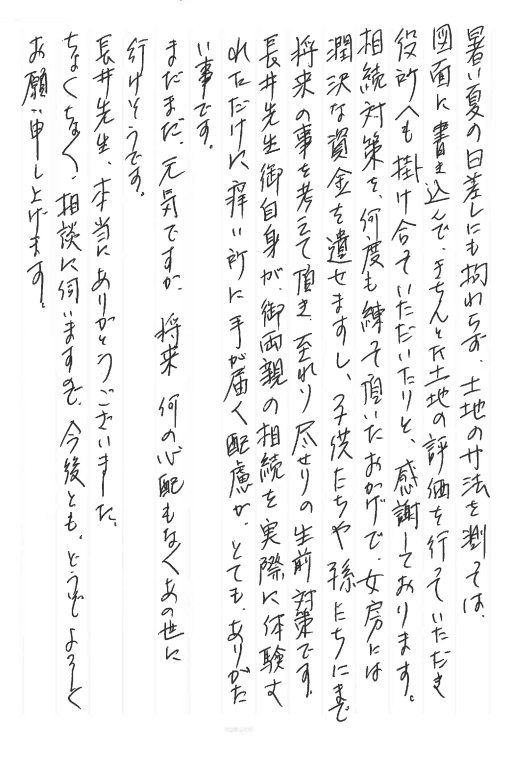 暑い夏の日差しにも拘わらず、土地の寸法を測っては、
図面に書き込んで、きちんとした土地の評価を行っていただき
役所へも掛け合っていただいたりと、感謝しております。
相続対策を、何度も練って頂いたおかげで、女房には
潤沢な資金を遺せますし、子供たちや孫たちにまで
将来の事を考えて頂き、至れり尽せりの生前対策です。
長井先生御自身が、御両親の相続を実際に体験さ
れただけに痒い所に手が届く配慮が、とても、ありがた
い事です。
まだまだ、元気ですが、将来何の心配もなくあの世に
行けそうです。
長井先生、本当にありがとうございました。
ちょくちょく、相談に伺いますので、今後とも、どうぞよろしく
お願い申し上げます。